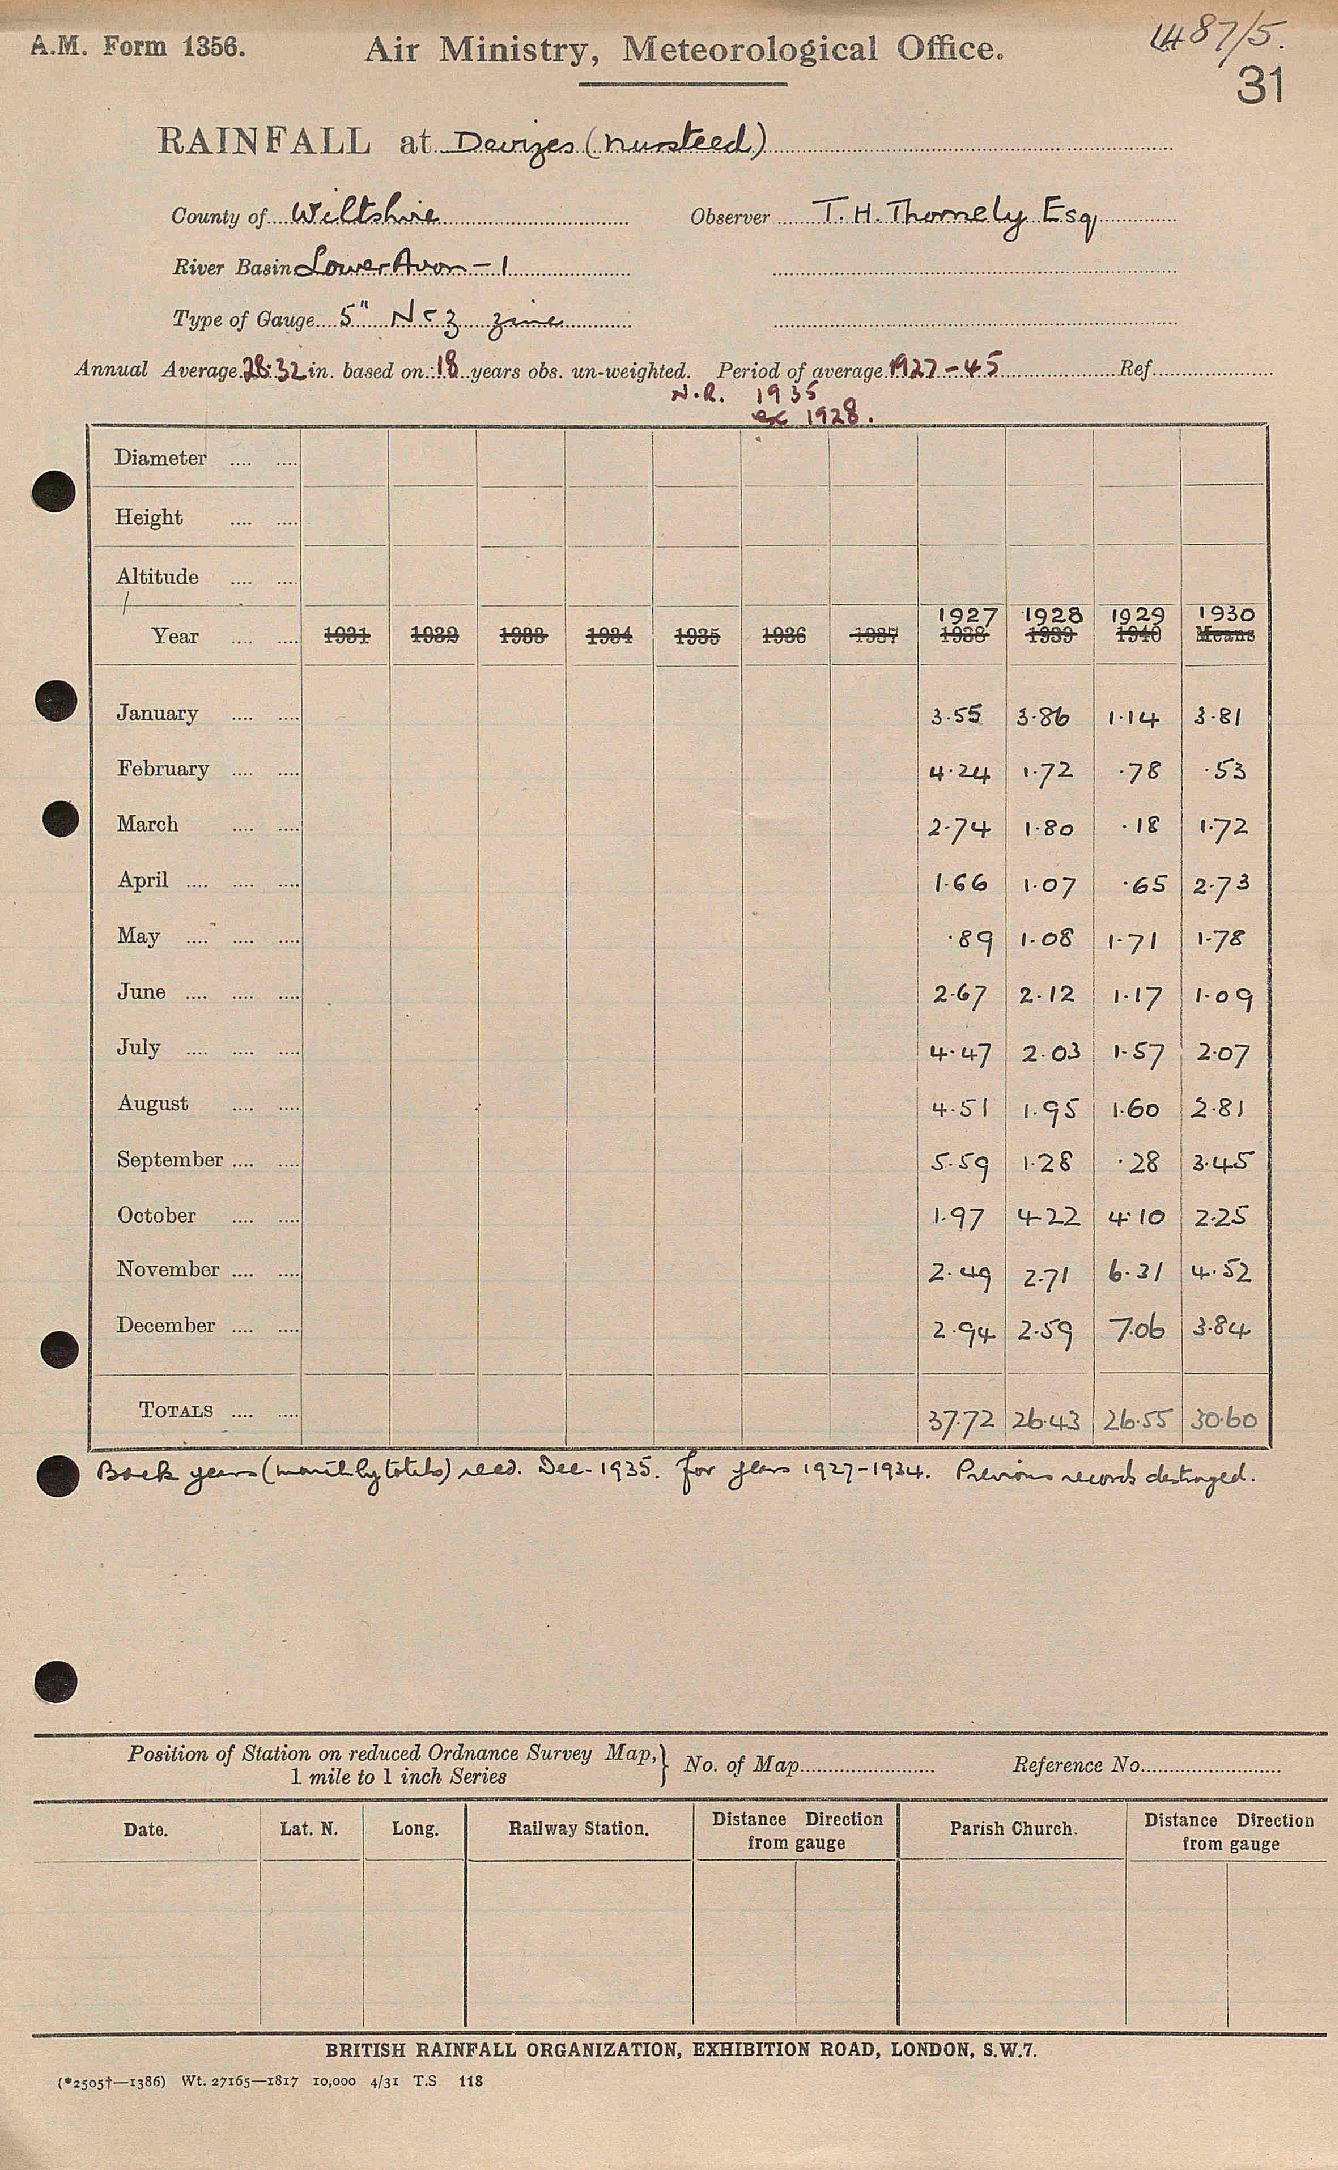 A.M. Form 1356.
Air Ministry, Meteorological Office.
1487/5.
31
RAINFALL at Devizes (Nursteed)
County of Wiltshire Observer T. H. Thornely Esq
River Basin Lower Avon - 1
Type of Gauge 5" N & Z zinc
Annual Average 28.32 in. based on 18 years obs. un-weighted. Period of average 1927-45 Ref
N.R. 1935
ex 1928.
Diameter
Height
Altitude
1927 1928 1929 1930
Year 1931 1932 1933 1934 1935 1936 1937 1938 1939 1940 Means
January 3.55 3.86 1.14 3.81
February 4.24 1.72 .78 .53
March 2.74 1.80 .18 1.72
April 1.66 1.07 .65 2.73
May .89 1.08 1.71 1.78
June 2.67 2.12 1.17 1.09
July 4.47 2.03 1.57 2.07
August 4.51 1.95 1.60 2.81
September 5.59 1.28 .28 3.45
October 1.97 4.22 4.10 2.25
November 2.49 2.71 6.31 4.52
December 2.94 2.59 7.06 3.84
TOTALS 37.72 26.43 26.55 30.60
Back years (monthly totals) recd. Dec. 1935. for years 1927-1934. Previous records destroyed.
Position of Station on reduced Ordnance Survey Map,} No. of Map Reference No.
1 mile to 1 inch Series
Date. Lat. N. Long. Railway Station. Distance Direction from gauge Parish Church. Distance Direction from gauge
BRITISH RAINFALL ORGANIZATION, EXHIBITION ROAD, LONDON, S.W.7.
(*2505†—1386) Wt. 27165—1817 10,000 4/31 T.S 118